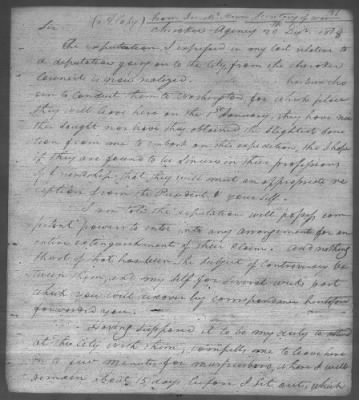 (a Copy) from Jos. McMinn Secretary of War
Sir Cherokee Agency 20th Decr. 1818
The expectation I expressed in my last relation to
a deputation going on to the City, from the cherokee
Council is now realized. has been cho
sen to conduct them to Washington for which place
they will leave here on the 1st January, they have nei
ther sought nor have they obtained the slightest dona
tion from me to embark on this expedition, tho I hope
if they are found to be sincere in their professions
of friendship that they will meet an appropriate re
ception from the President & yourself.
I am told the deputation will possess com
petent powers to enter into any arrangement for an
entire extinguishment of their claim. and nothing
short of that has been the subject of controversy be
tween them, and my self for several weeks past
which you will discover by correspondence heretofore
forwarded you.
Having supposed it to be my duty to attend
at the City with them, compells me to leave here
in a few minutes for murfreesboro, where I will
remain about 15 days before I set out, which